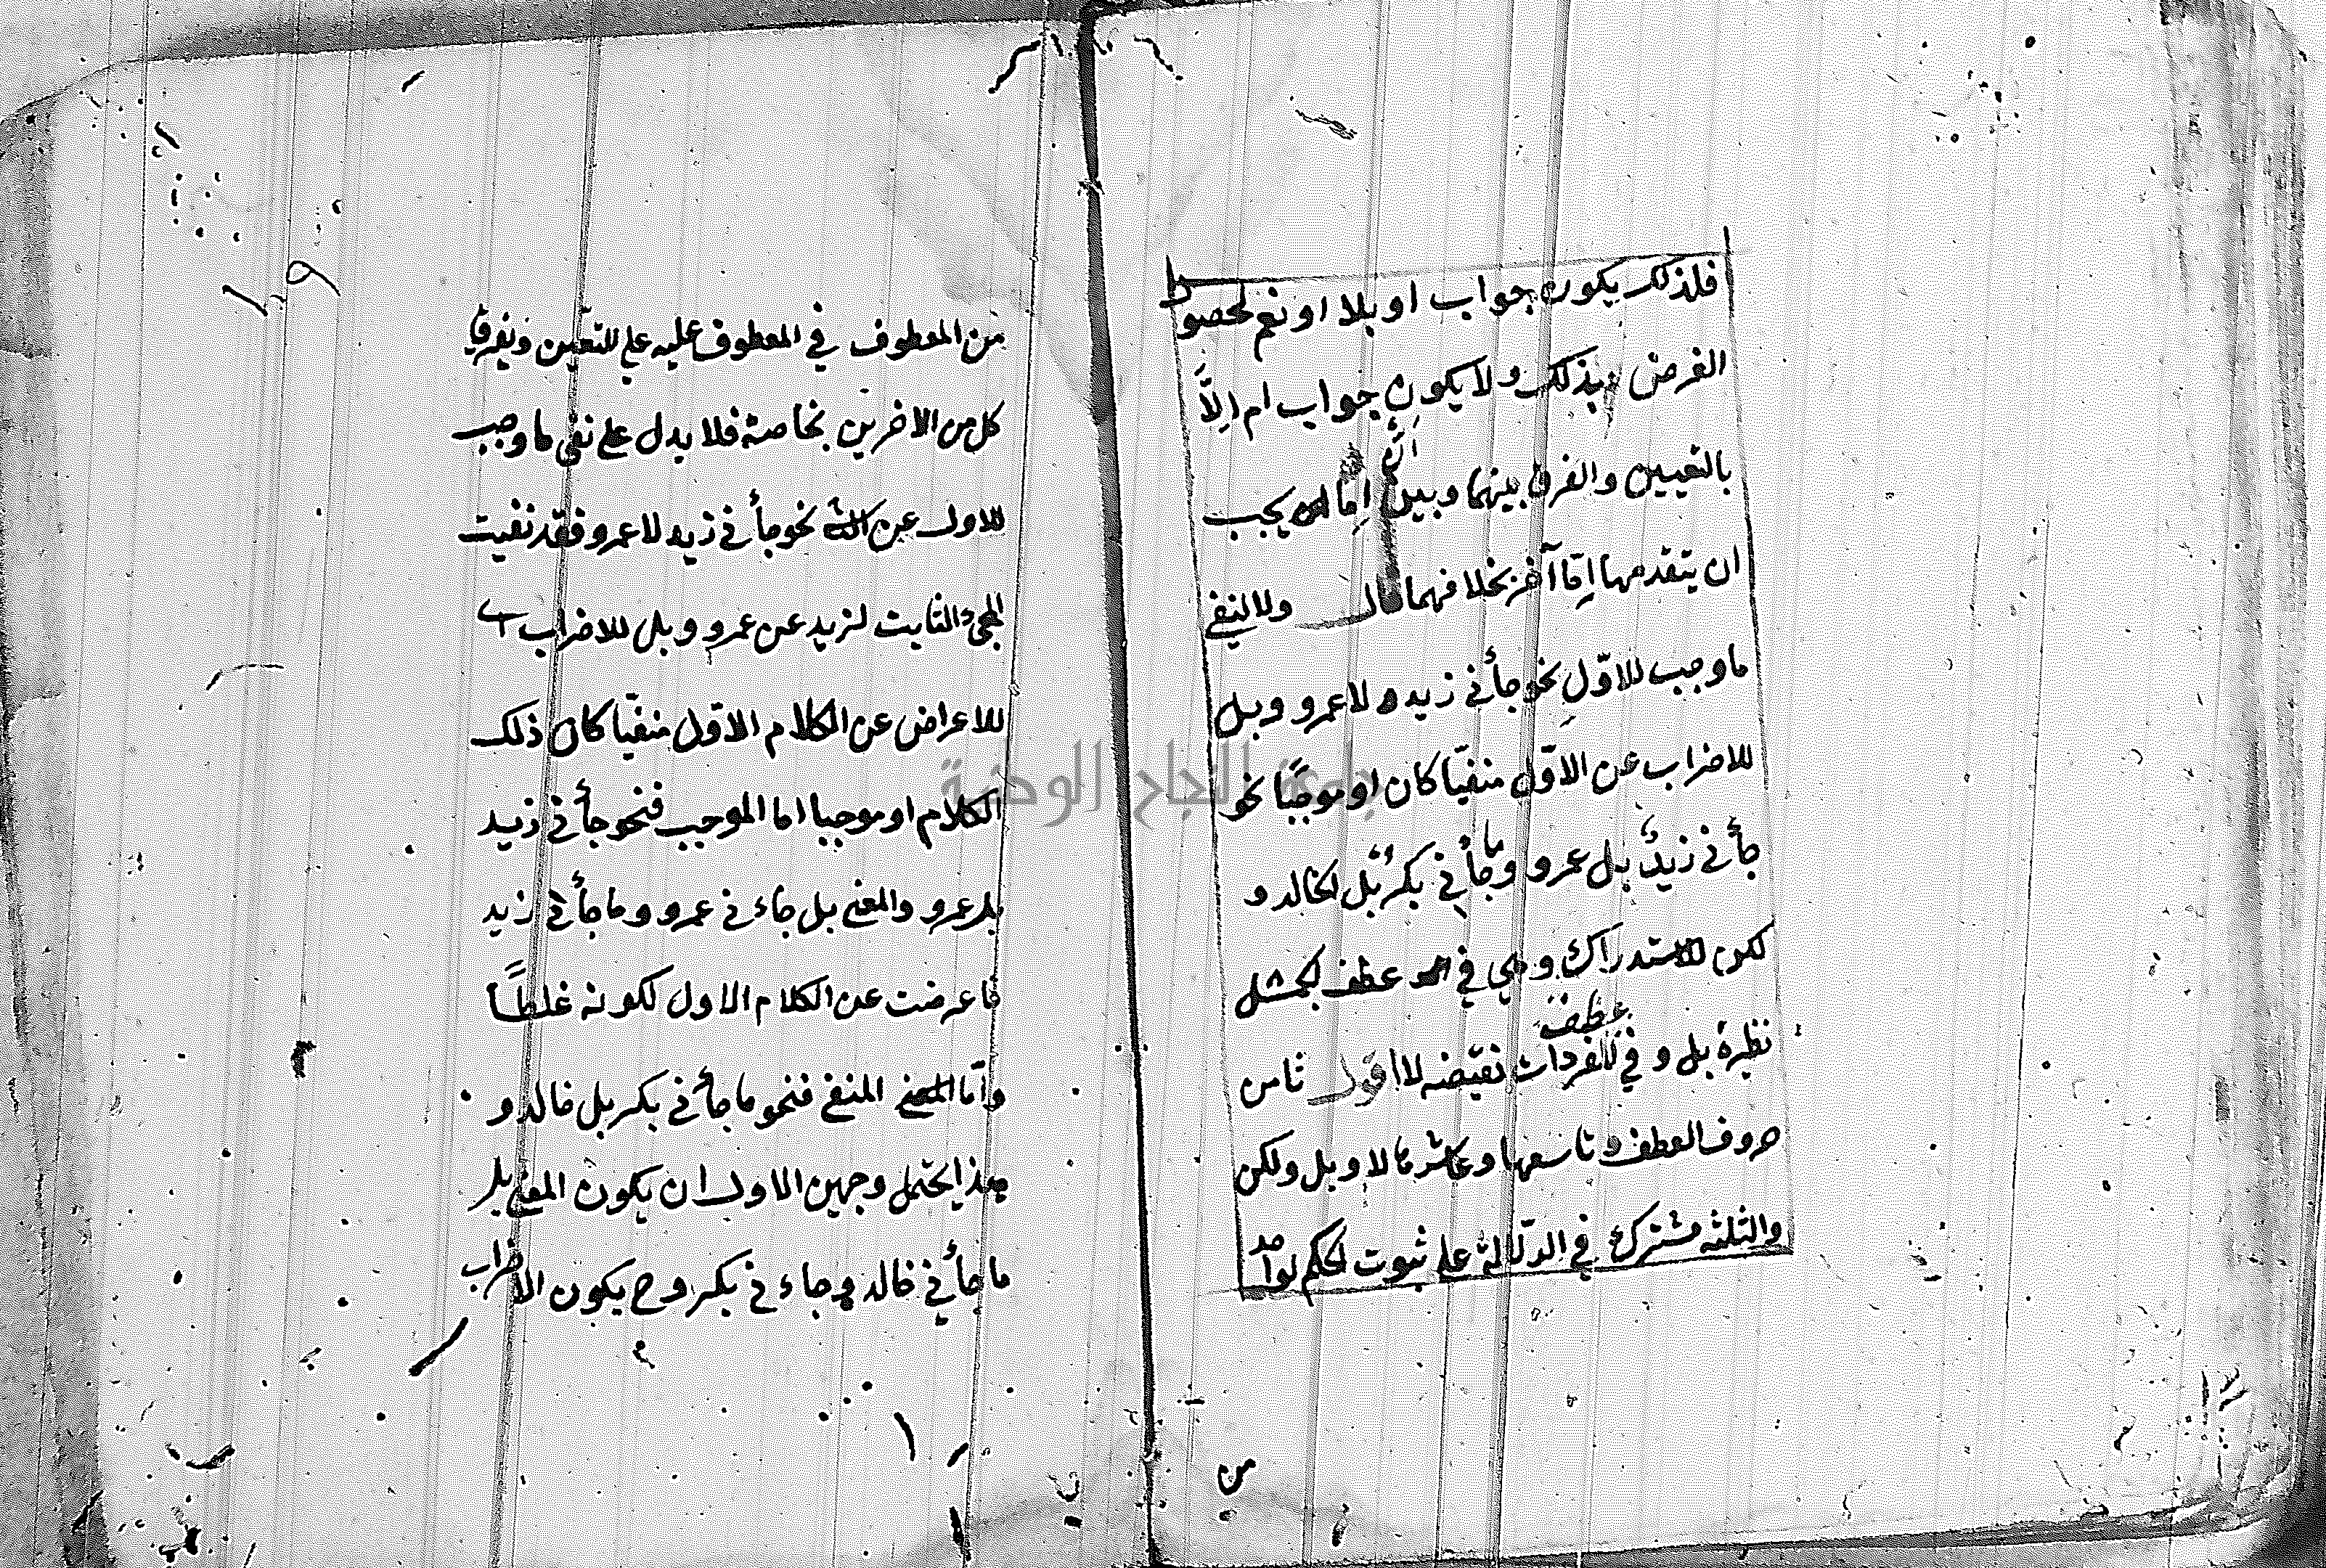 فلذلك يكون جواب او بلا او نعم لحصول
الغرض بذلك ولا يكون جواب ام الِاَّ
بالتعيين والفرق بينهما وبين اِمّا انه يجب
ان يتقدمها اِمّا آخر بخلافهما قال ولا لنفي
ما وجب للاوّل نحو جأني زيد لا عمرو وبل
للاضراب عن الاوّل منفيّا كان او موجبًا نحو
جأني زيدٌ بل عمرو وما جأني بكرٌ بل خالد و
لكن للاستدراك وهي في عطف الجمل
نظيرة بل وفي عطف المفردات نقيضه لا اقول ثامن
حروف العطف وتاسعها وعاشرها لا وبل ولكن
والثلثه مشتركة في الدّلالة على ثبوت الحكم لواحد
من المعطوف في المعطوف عليه على التعّين ويفرق
كل من الاخرين بخاصة فلا يدل على نفي ما وجب
للاول عن نحو جأني زيد لا عمرو فقد نفيت
المجئ الثابت لزيد عن عمرو وبل للاضراب
للاعراض عن الكلام الاوّل منفيّا كان ذلك
الكلام او موجبا اما الموجب فنحو جأني زيد
بل عمرو والمعنى بل جاءني عمرو وما جأني زيد
فاعرضت عن الكلام الاول لكونه غلطًا
وامّا المنفي فنحو ما جأني بكر بل خالد و
هذا يحتمل وجهين الاول ان يكون المعنى بل
ما جأني خالد وجاءني بكر وح يكون الاضراب
جامعة النجاح الوطنية